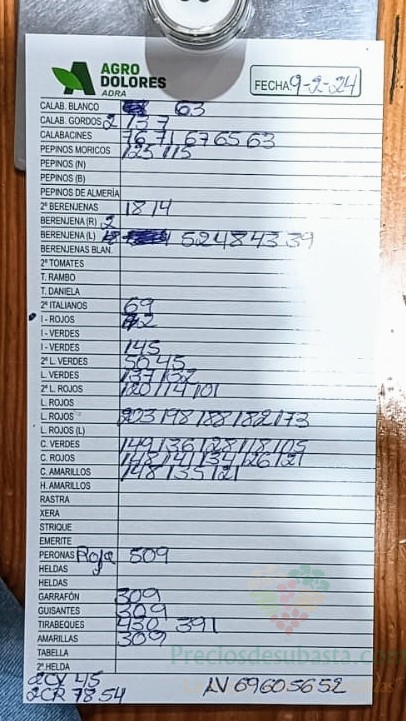 AGRO
DOLORES
ADRA
FECHA 9-2-24
CALAB. BLANCO 63
CALAB. GORDOS 2 13 7
CALABACINES 76 71 67 65 63
PEPINOS MORICOS 125 115
PEPINOS (N)
PEPINOS (B)
PEPINOS DE ALMERÍA
2ª BERENJENAS 18 14
BERENJENA (R) 2
BERENJENA (L) 52 48 43 39
BERENJENAS BLAN.
2ª TOMATES
T. RAMBO
T. DANIELA
2ª ITALIANOS 69
I - ROJOS
I - VERDES
I - VERDES 145
2ª L. VERDES 50 45
L. VERDES 137 132
2ª L. ROJOS 120 114 101
L. ROJOS
L. ROJOS 203 198 188 182 173
L. ROJOS (L)
C. VERDES 149 136 128 118 105
C. ROJOS 148 141 134 126 121
C. AMARILLOS 148 135 121
H. AMARILLOS
RASTRA
XERA
STRIQUE
EMERITE
PERONAS Roja 509
HELDAS
HELDAS
GARRAFÓN 309
GUISANTES 309
TIRABEQUES 430 391
AMARILLAS 309
TABELLA
Preciosdesubasta.com
2ª HELDA
2CV 45
2CR 78 54
LV 69 60 56 52